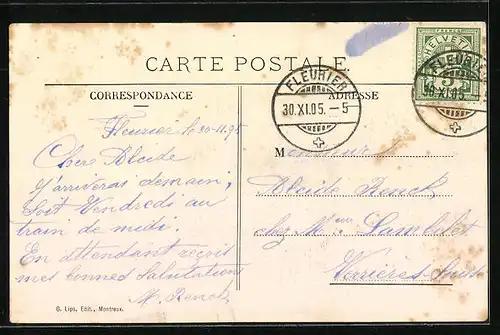 CARTE POSTALE.
CORRESPONDANCE
ADRESSE
HELVETIA
5
FLEURIER
30.XI.05. - 5
FLEURIER
30.XI.05.
Fleurier le 30-11.95
Chère Alcide
J'arriverai demain,
soit Vendredi au
train de midi.
En attendant reçois
mes bonnes salutations
Monsieur
Alcide Renck,
chez M. Lambelet
Verrières-Suisse
G. Lips, Edit., Montreux.